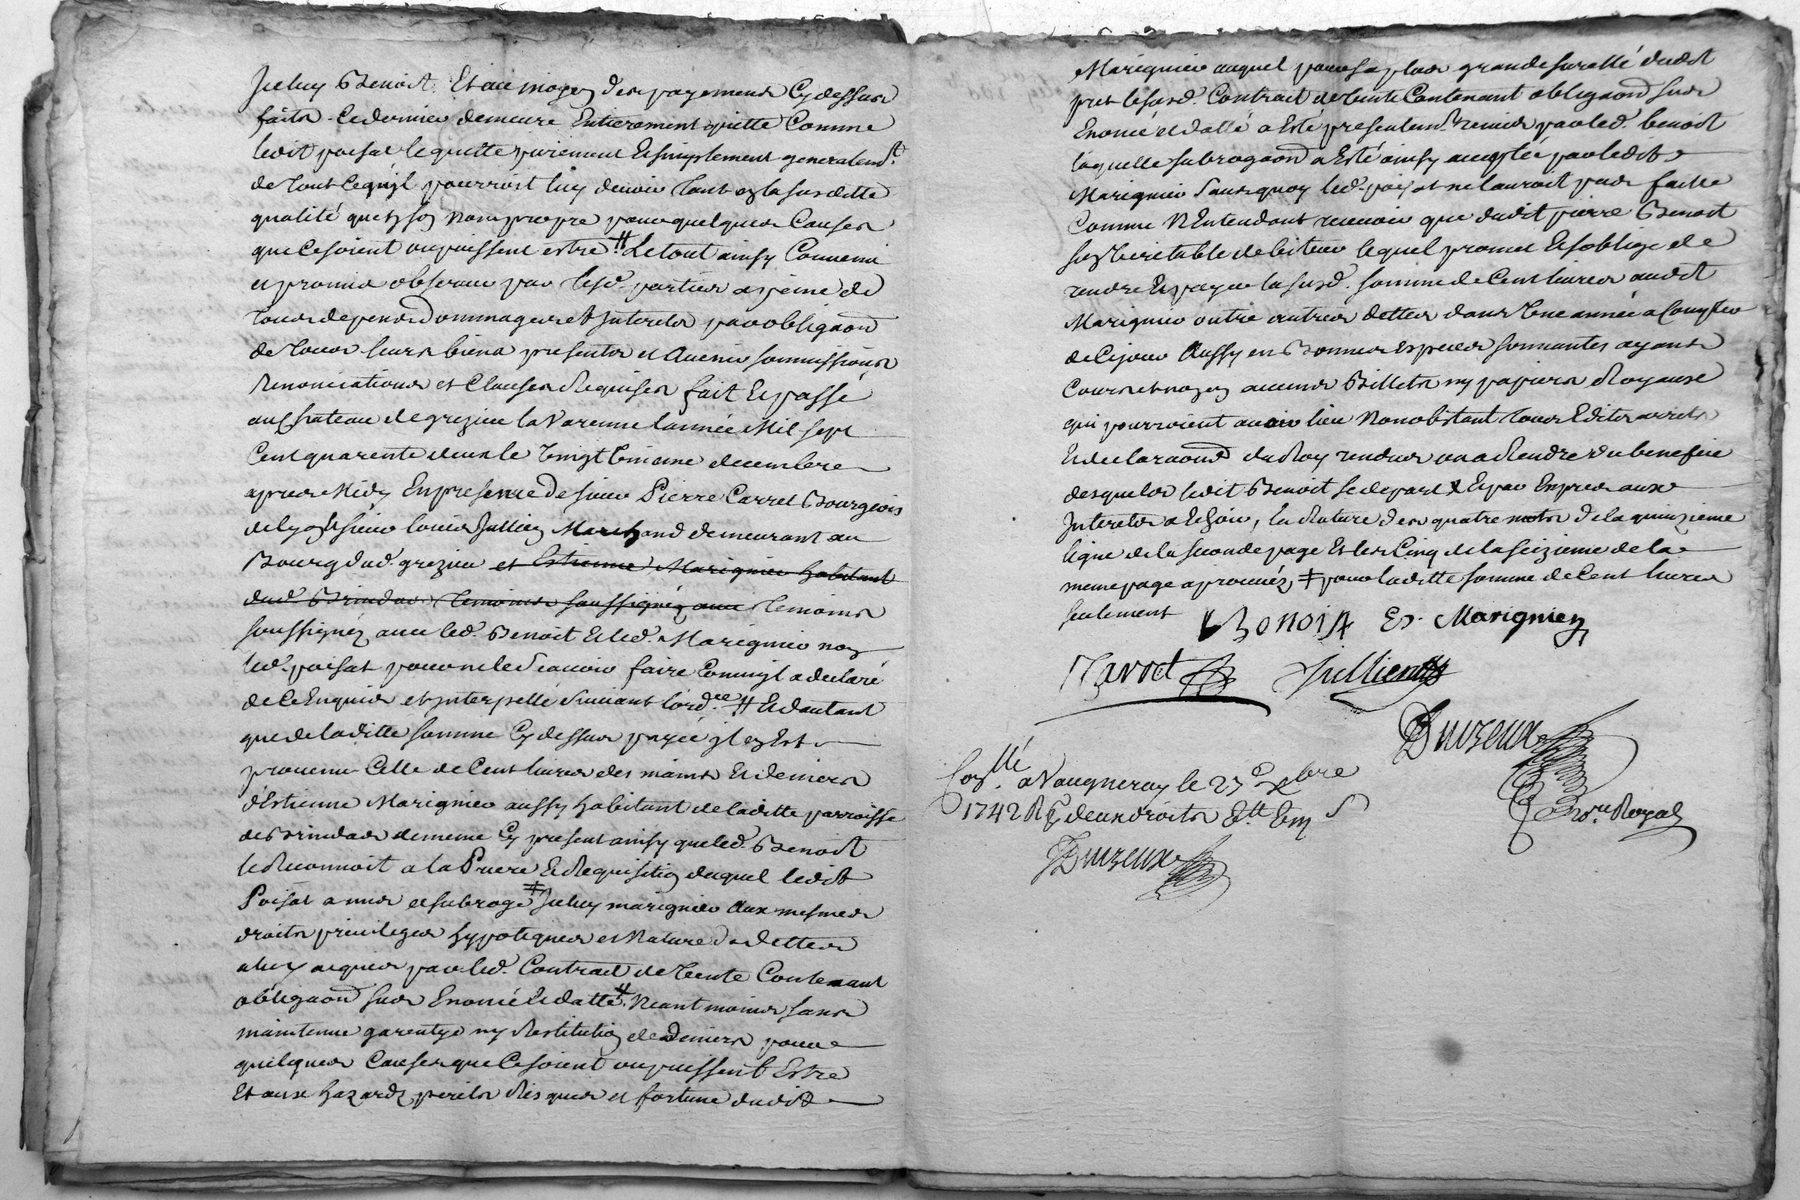 Iceluy Benoist. Et au moyen des payements Cy dessus
faits Ce dernier demeure Entierement quitte Comme
ledit poisat le quitte purement Et simplement generalem.t
de tout ce qu'jl pourroit luy devoir tant en la susditte
qualité qu'en son nom propre pour quelques Causes
que Ce soient ou puissent estre # Le tout ainsy Convenu
et promis observer par lesd. parties a peine de
tous depens Dommages et Interets par obligaon
de tous leurs biens presents et avenir soumissions
Renonciations et Clauses Requises fait Et passé
au Chateau de grezieu la Varenne l'année Mil sept
Cent quarente deux le Vingt Vnieme decembre
apres Midy En presence De sieur Pierre Carret Bourgeois
de lyon sieur louis Jullien Marchand demeurant au
Bourg dud. grezieu et Estienne Marignier habitant
dud. Brindas temoins soussignéz avec temoins
soussignéz avec led. Benoit Et led. Marignier non
led. poisat pour ne le sçavoir faire Comm'jl a declaré
de Ce Enquis et jnterpellé suivant l'ord.ce # Et d'autant
que de laditte somme Cy dessus payée jl en Est
provenu Celle de Cent livres des mains Et deniers
d'Estienne Marignier aussy habitant de laditte parroisse
de Brindas de meme Cy present ainsy que led. Benoit
le Reconnoit a la Priere Et Requisition duquel ledit
Poisat a mis et subrogé ǂ Jceluy marignier Aux mesmes
droits privileges hypoteques et Nature De dettes
a luy acquis par led. Contrait de Vente Contenant
obligaon sus Enoncé Et datté # Neantmoins sans
maintenue garentye ny Restitution de Deniers pour
quelques Causes que Ce soient ou puissent Estre
Et aux hazards perils Risques et fortune dudit
Marignier auquel pour sa plus grande suretté dudit
pret le susd. Contrait de Vente Contenant obligaon sus
Enoncé et datté a Esté presentem.t remis par led. benoit
laquelle subrogaon a Esté ainsy acceptée par ledit
Marignier sans quoy led. poisat ne l'auroit pas faitte
Comme N'Entendant recevoir que dudit pierre Benoit
son Veritable debiteur lequel promet Et s'oblige de
rendre Et payer la susd. somme de Cent livres audit
Marignier outre autres dettes dans Vne année a Compter
de Cejour Aussy en Bonnes Especes sonnantes ayant
Cours et non en aucuns Billets ny papiers Royaux
qui pourroient avoir lieu Nonobstant tous Edits arrets
Et declaraons du Roy rendus ou a Rendre du benefice
desquels ledit Benoit se depart & Et par Expres aux
Interets a Echoir, la Rature des quatre mots de la quinzieme
ligne de la seconde page Et les Cinq de la seizieme de la
meme page aprouvéz, ǂ pour laditte somme de Cent livres
seulement Benoist Es. Marignier
Carret Jullien
Duizeux
No.re Royal
Con.llé a Vaugneray le 23e Xbre
1742 R deux droits
Duizeux